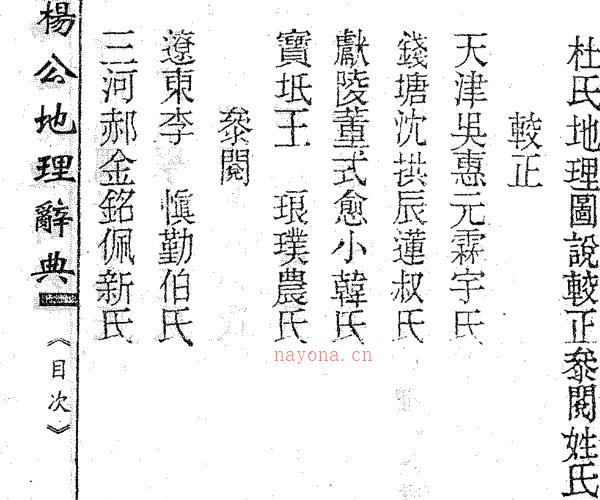 杜氏地理圖說較正叅閱姓氏
較正
天津吳惠元霖宇氏
錢塘沈拱辰蓮叔氏
獻陵董式愈小韓氏
寶坻王 琅璞農氏
叅閱
遼東李 愼勤伯氏
三河郝金銘佩新氏
楊公地理辭典
《目次》
nayona.cn